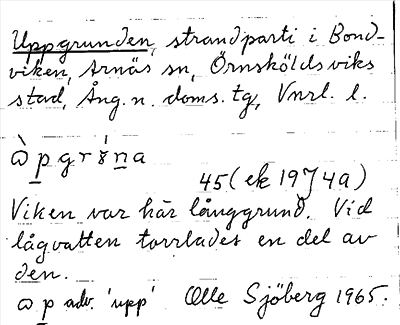 Uppgrunden, strandparti i Bond-
viken, Arnäs sn, Örnsköldsviks
stad, Ång. n. doms. tg, Vnrl. l.
45 (ek 19J4a)
Viken var här långgrund. Vid
lågvatten torrlades en del av
den.
adv. 'upp' Olle Sjöberg 1965.